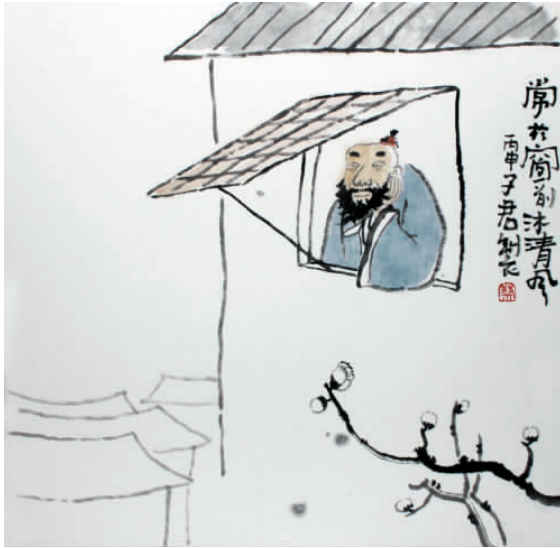 常於窗前沐清风
丙申子君制